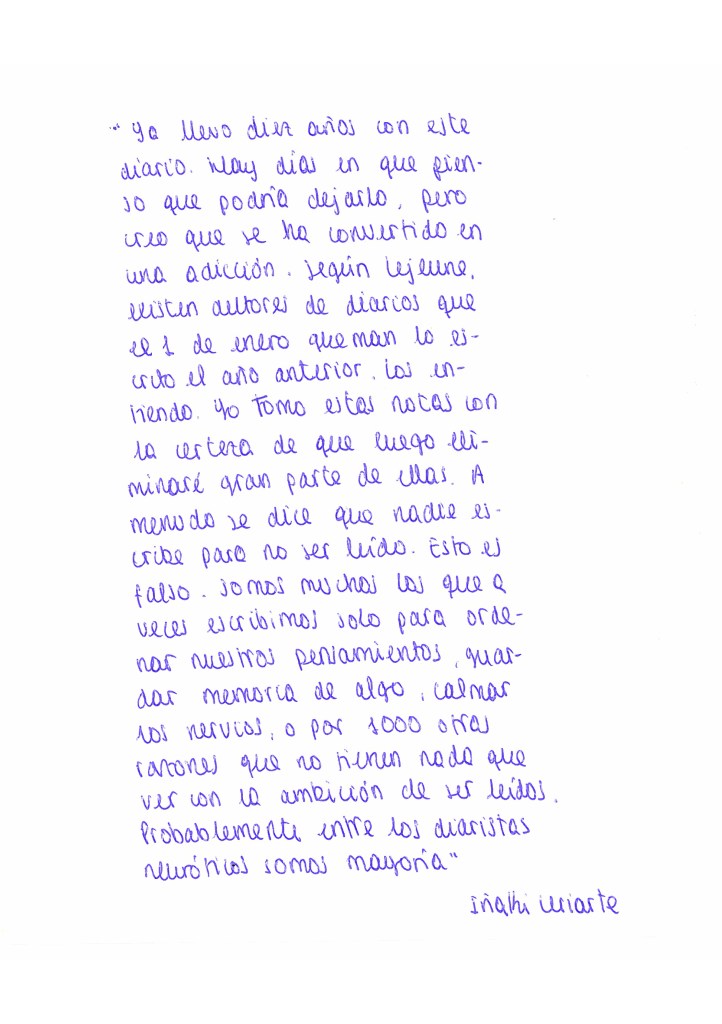 "Ya llevo diez años con este
diario. Hay días en que pien-
so que podría dejarlo, pero
creo que se ha convertido en
una adicción. Según Lejeune,
existen autores de diarios que
el 1 de enero queman lo es-
crito el año anterior. Los en-
tiendo. Yo tomo estas notas con
la certeza de que luego eli-
minaré gran parte de ellas. A
menudo se dice que nadie es-
cribe para no ser leído. Esto es
falso. Somos muchos los que a
veces escribimos solo para orde-
nar nuestros pensamientos, guar-
dar memoria de algo, calmar
los nervios, o por 1000 otras
razones que no tienen nada que
ver con la ambición de ser leídos.
Probablemente entre los diaristas
neuróticos somos mayoría"
Iñaki Uriarte